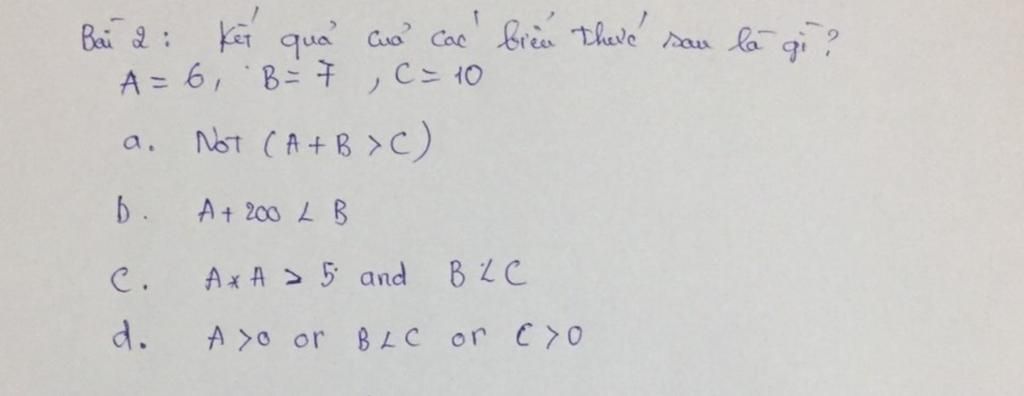 Bài 2: Kết quả cuả các biểu thức sau là gì?
A = 6, B = 7, C = 10
a. Not (A + B > C)
b. A + 200 < B
c. A * A > 5 and B < C
d. A > 0 or B < C or C > 0